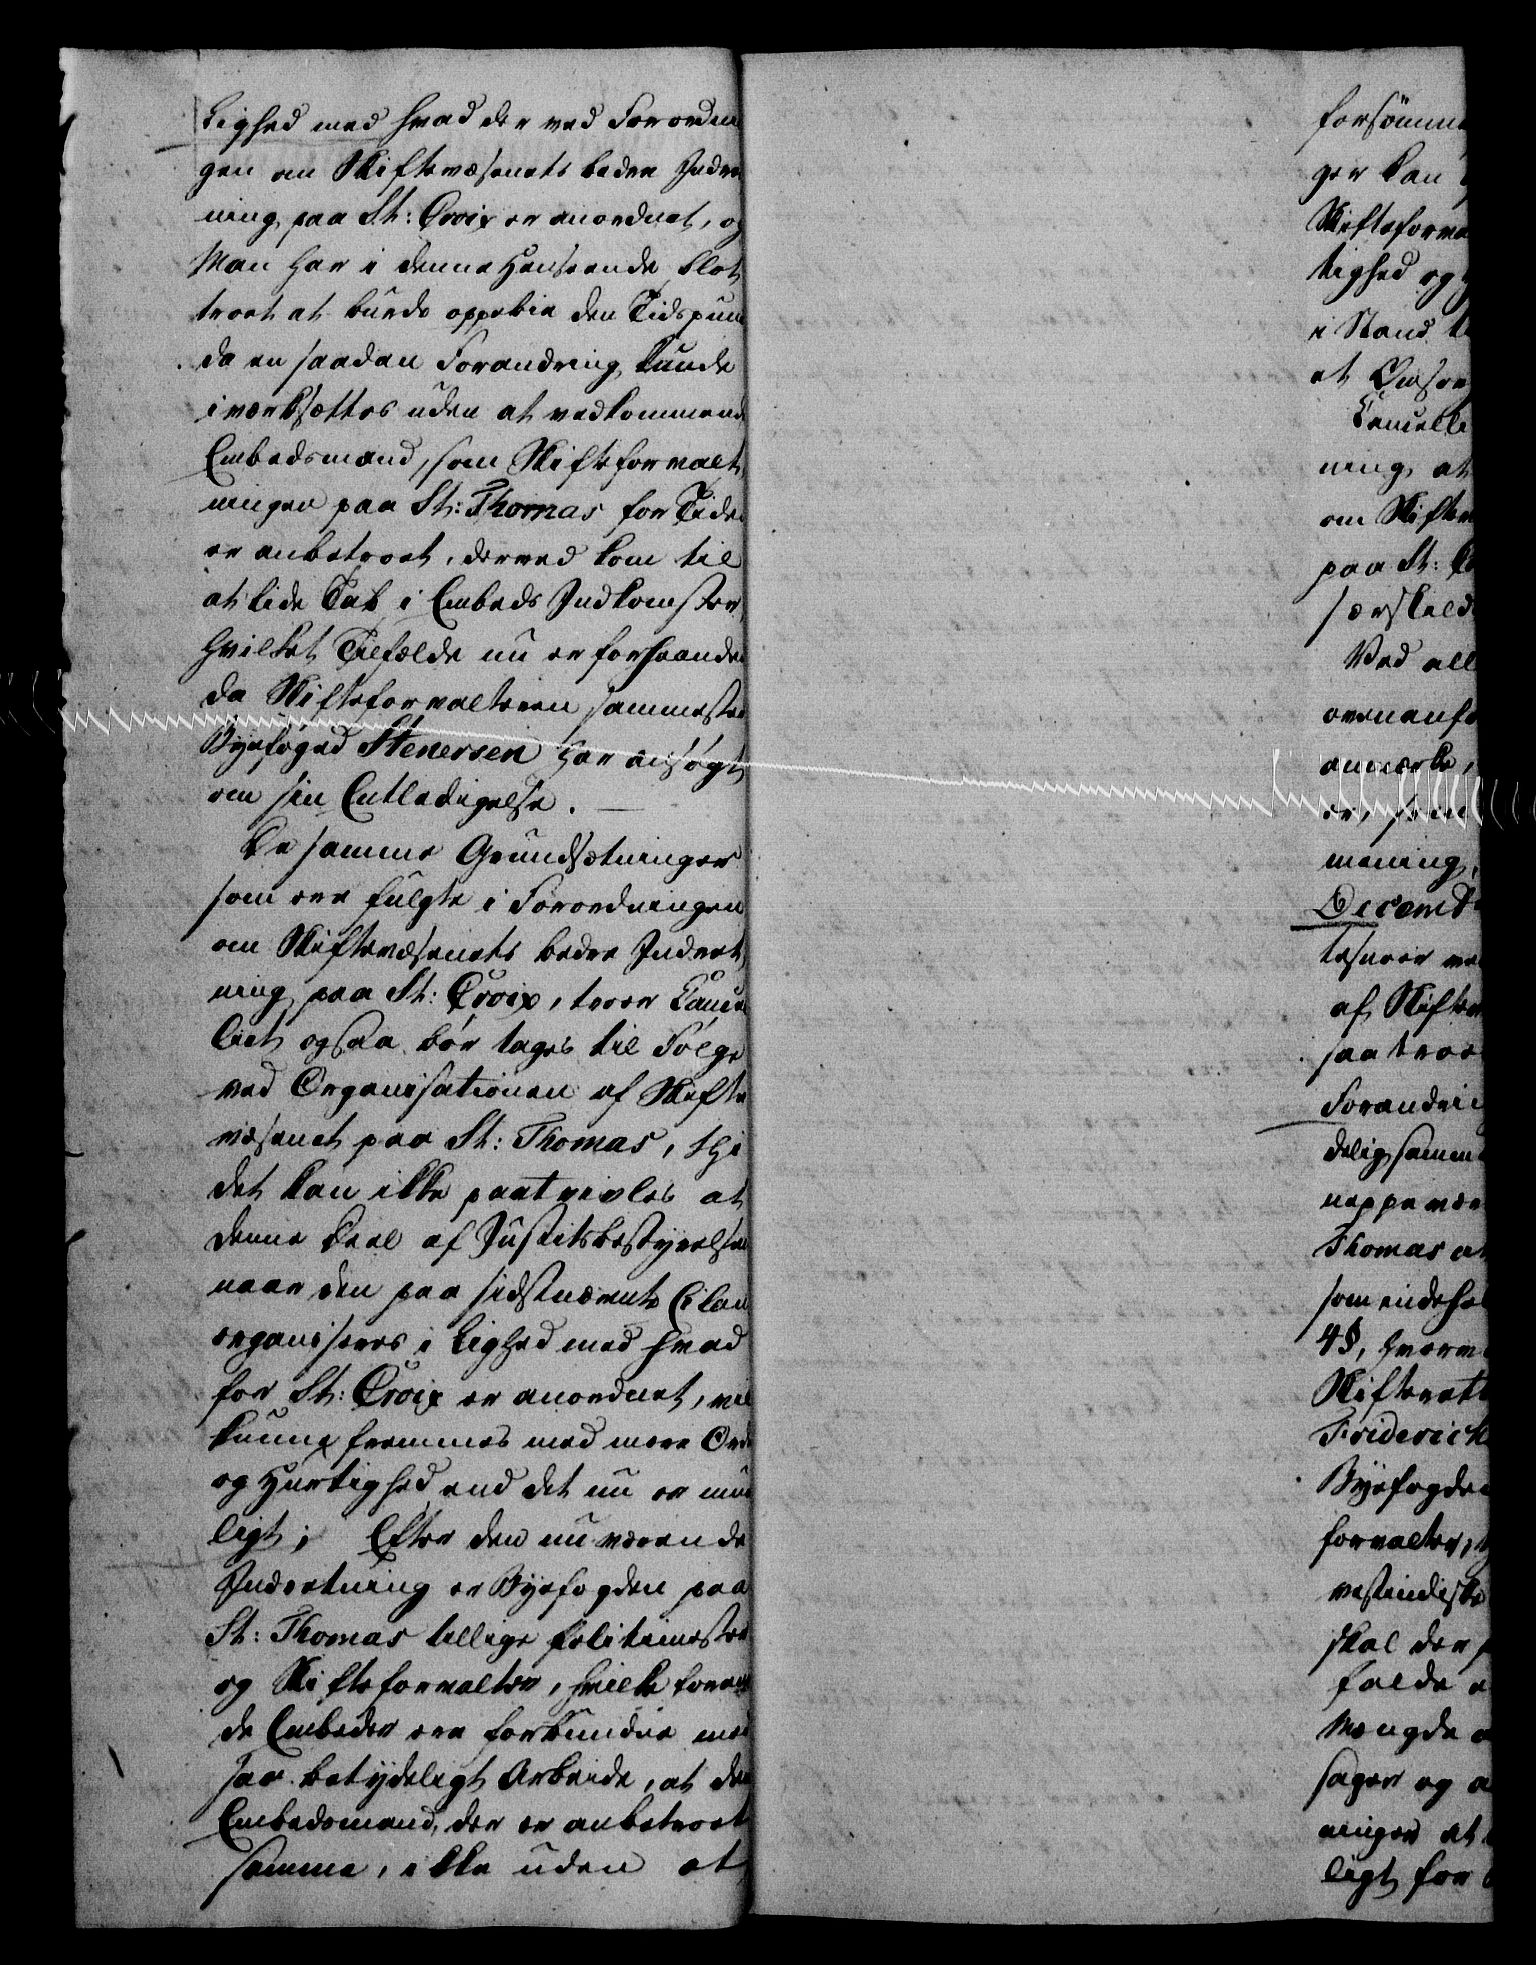 Lighed med hvad der ved Forordnin
gen om Skiftevæsenets bedre Indret
ning paa St: Croix er anordnet, og
Man har i denne Henseende blot
troet at burde oppebie den Tidspunk
da en saadan Forandring kunde
iværksættes uden at vedkommende
Embedsmand, som Skifteforvalt
ningen paa St: Thomas for Tiden
er anbetroet, derved kom til
at lide Tab i Embeds Indkomster,
hvilket Tilfælde nu er forhaanden
da Skifteforvalteren sammested
Byefoged Stenersen har ansøgt
om sin Entledigelse. —
De samme Grundsætninger
som ere fulgte i Forordningen
om Skiftevæsenets bedre Indret
ning paa St: Croix, troer Cance
liet ogsaa bør tages til Følge
ved Organisationen af Skifte
væsenet paa St: Thomas, thi
det kan ikke paatvivles at
denne Deel af Justitsbestyrelsen
naar den paa sidstnævnte Eiland
organiseres i Lighed med hvad
for St: Croix er anordnet, vil
kunne fremmes med mere Orden
og Hurtighed end det nu er mue
ligt; Efter den nu værende
Indretning er Byefogden paa
St: Thomas tillige Politiemester
og Skifteforvalter, hvilke foreen
de Embeder ere forbundne med
saa betydeligt Arbeide, at den
Embedsmand, der er anbetroet
samme, ikke uden at
forsømme
ger kan
Skifteforva
tighed og
i Stand
at
Cancelli
ning, at
om Skifte
paa St: C
særskild
Ved all
ovenanfø
anmærke,
er, som
mening,
Decemb

af Skifte
saa troe
Forandri
delig samm
neppe være
Thomas at
som indehol
4§, hvorve
Skifterett
Friderich
Byefogden
forvalter,
vestindiske
skal der
falde
Mængde
sager og
ninger at
ligt for